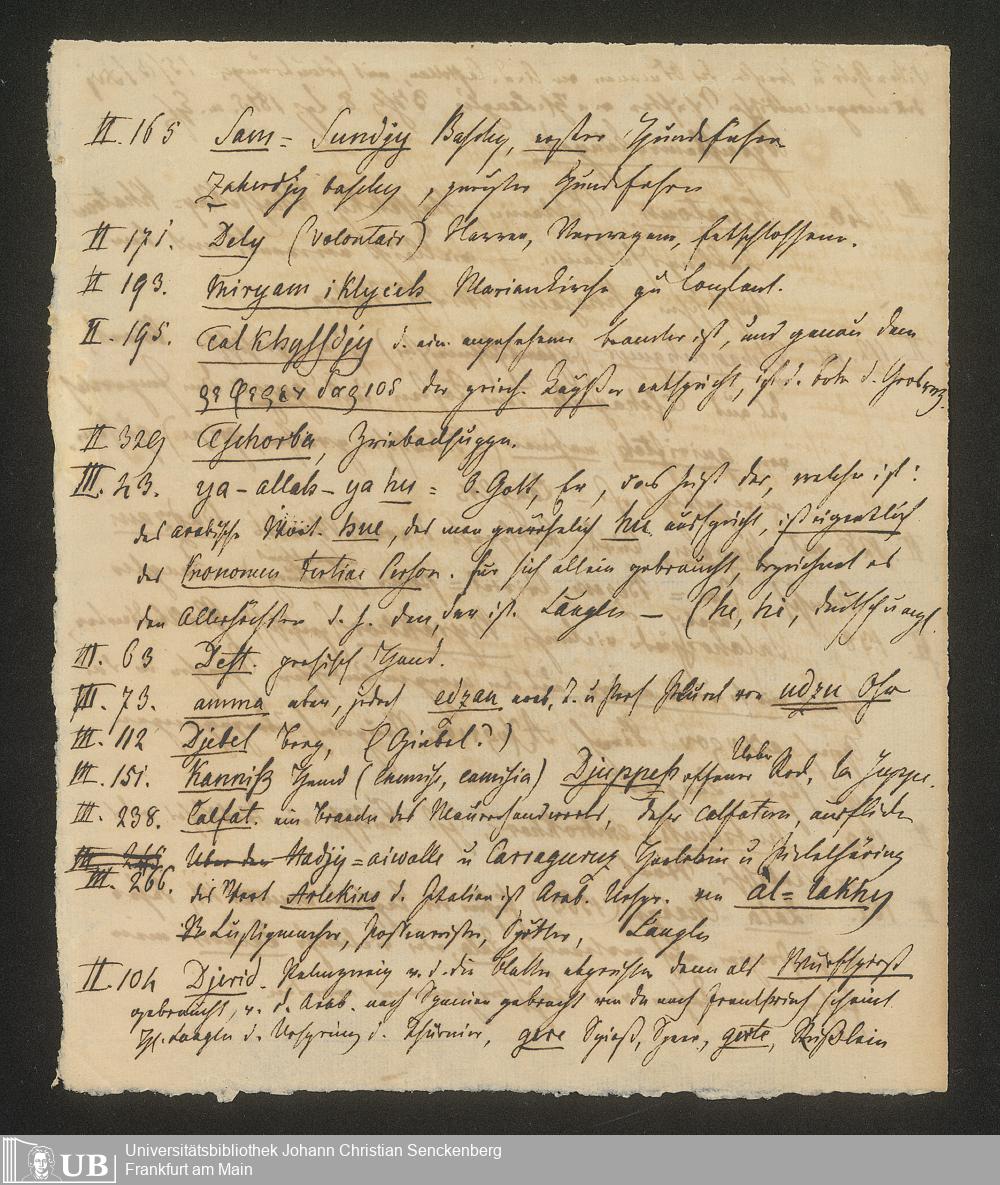 II. 165 Sam = Sundjy Baschy, erster Hundeführer
Zaherdjy baschy, zweyter Hundeführer
II 171. Dely (volontair) Narren, Verwegene, Entschlossene.
II 193. Miryam iklycieh Marienkirche zu Constant.
II. 195. Talkhyssdjy d. ein angesehener Beamter ist, und genau dem
der griech. Kayser entspricht, ist d. Bote d. Großvez.
II 329 Tschorba, Zwiebackssuppe.
III. 23. ya-allah-ya hu = O. Gott, Er, das heist der, welcher ist:
das arabische Wort hue, das man gewöhnlich hu ausspricht, ist eigentlich
das Pronomen tertiae Person. für sich allein gebraucht, bezeichnet es
den Allerhöchsten d. h. den, der ist. Langles – (he, hé, deutsch u engl.
III. 63 Dest. persisch Hand.
III. 73. amma aber, jedoch edzan arab. Plural von udzn Ohr
III. 112 Djebel Berg, (Giebel?)
III. 151. Kamniß Hemd (chemise, camisia) Djuppeh offener Ueber Rock, la Juppe.
III. 238. Calfat. ein Beamter des Maurerhandwerks, daher calfatern, ausflicken
III. 266. Ueber den Hadjy=aiwatte u Carragueuz
das Wort Arlekino d. Italien ist Arab. Urspr. von al=lakhy
Lustigmacher, Possenreisser, Spötter, Langles
II. 104 Djerid. Palmzweig v. d. die Blätter abgerissen dann als Wurfspieß
gebraucht, v. d. Arab. nach Spanien gebracht von da nach Frankreich scheint
Hr. Langles d. Ursprung d. Thurnier, gere Spieß, Speer, gerte,
Universitätsbibliothek Johann Christian Senckenberg
UB Frankfurt am Main